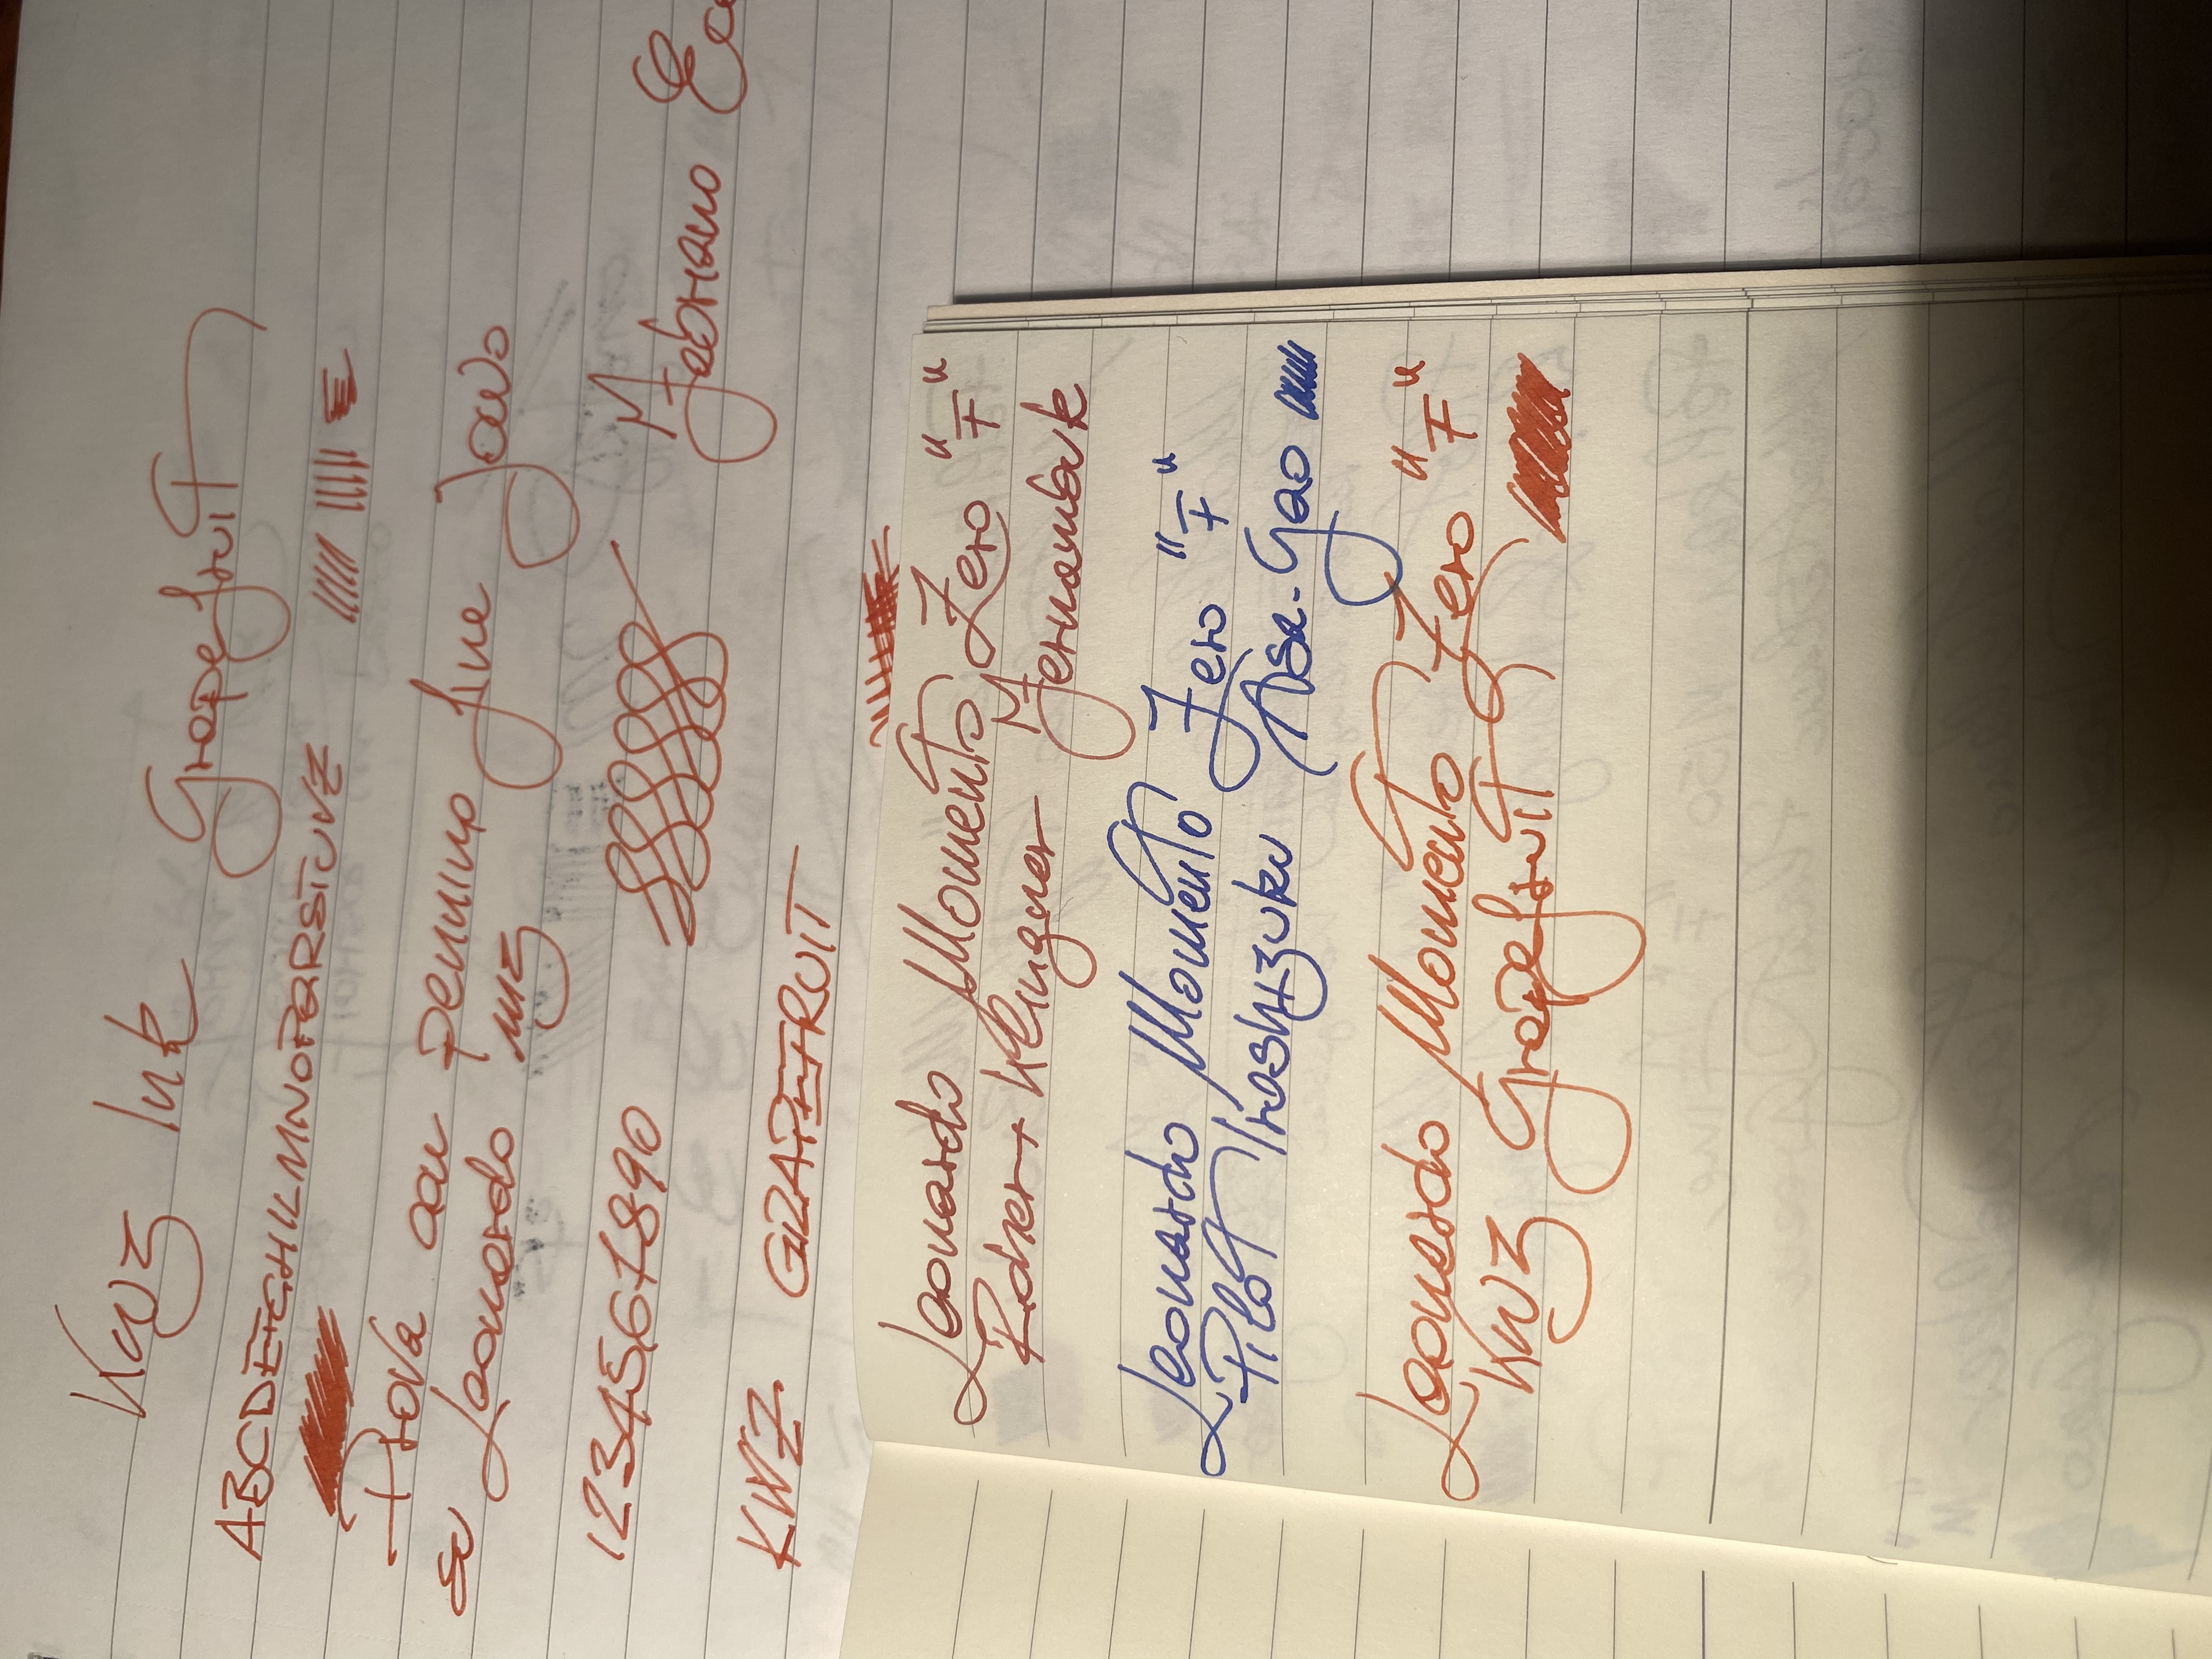 KWZ Ink Grapefruit
ABCDEFGHILMNOPQRSTUVZ
Prova con pennino fine
su Leonardo
1234567890
Fabriano
KWZ GRAPEFRUIT
Leonardo Momento Zero "F"
Rohrer + Klingner Fernambuk
Leonardo Momento Zero "F"
Pilot Iroshizuku Asa-Gao
Leonardo Momento Zero "F"
KWZ Grapefruit